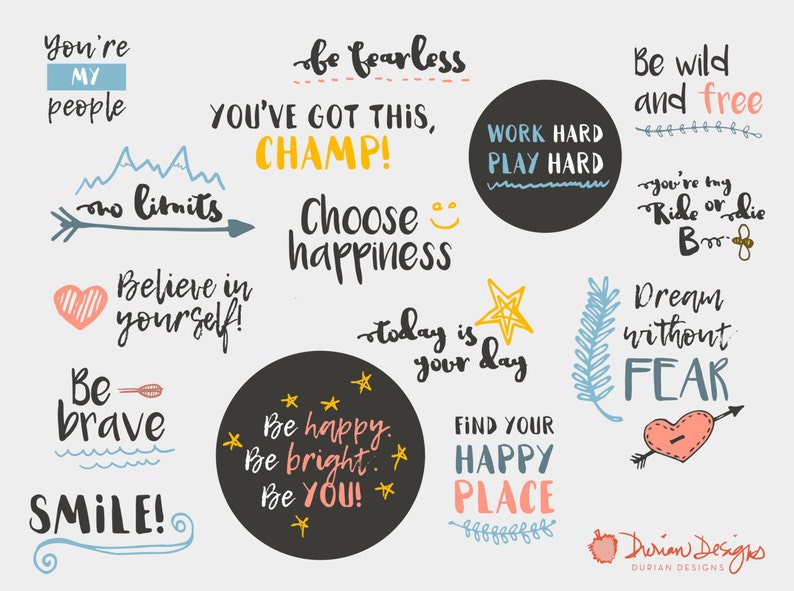 You're
MY
people
be fearless
YOU'VE GOT THIS,
CHAMP!
WORK HARD
PLAY HARD
Be wild
and free
no limits
Choose
happiness
you're my
Ride or die
B
Believe in
yourself!
today is
your day
Dream
without
FEAR
Be
brave
Be happy.
Be bright.
Be YOU!
FIND YOUR
HAPPY
PLACE
SMiLE!
Durian Designs
DURIAN DESIGNS